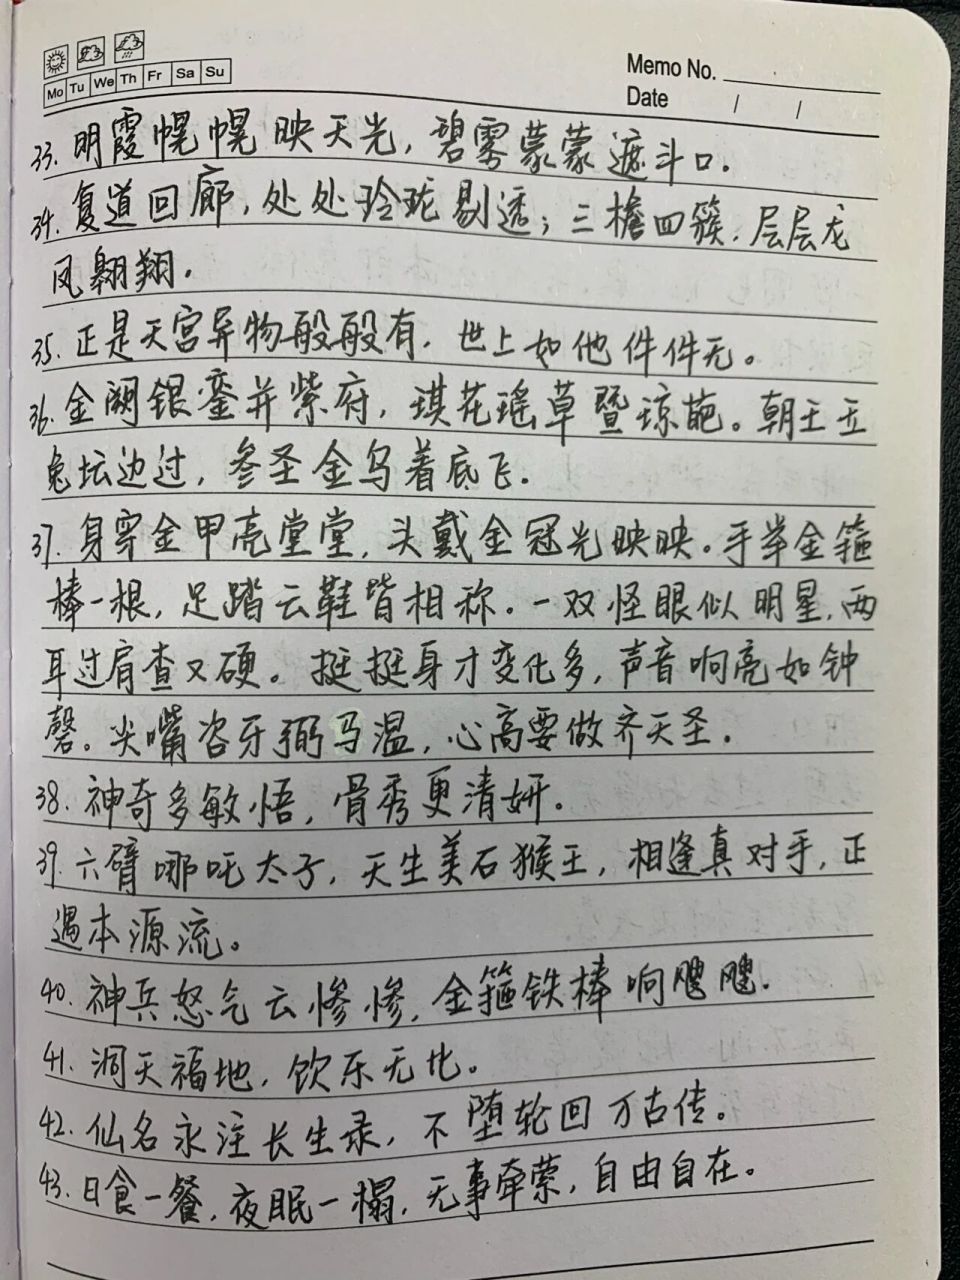 Mo Tu We Th Fr Sa Su
Memo No.
Date / /
33. 明霞幌幌映天光，碧雾蒙蒙遮斗口。
34. 复道回廊，处处玲珑剔透；三檐四簇，层层龙
凤翱翔。
35. 正是天宫异物般般有，世上如他件件无。
36. 金阙银銮并紫府，琪花瑶草暨琼葩。朝王玉
兔坛边过，参圣金乌着底飞。
37. 身穿金甲亮堂堂，头戴金冠光映映。手举金箍
棒一根，足踏云鞋皆相称。一双怪眼似明星，两
耳过肩查又硬。挺挺身才变化多，声音响亮如钟
磬。尖嘴咨牙弼马温，心高要做齐天圣。
38. 神奇多敏悟，骨秀更清妍。
39. 六臂哪吒太子，天生美石猴王，相逢真对手，正
遇本源流。
40. 神兵怒气云惨惨，金箍铁棒响飕飕。
41. 洞天福地，饮乐无比。
42. 仙名永注长生录，不堕轮回万古传。
43. 日食一餐，夜眠一榻，无事牵萦，自由自在。